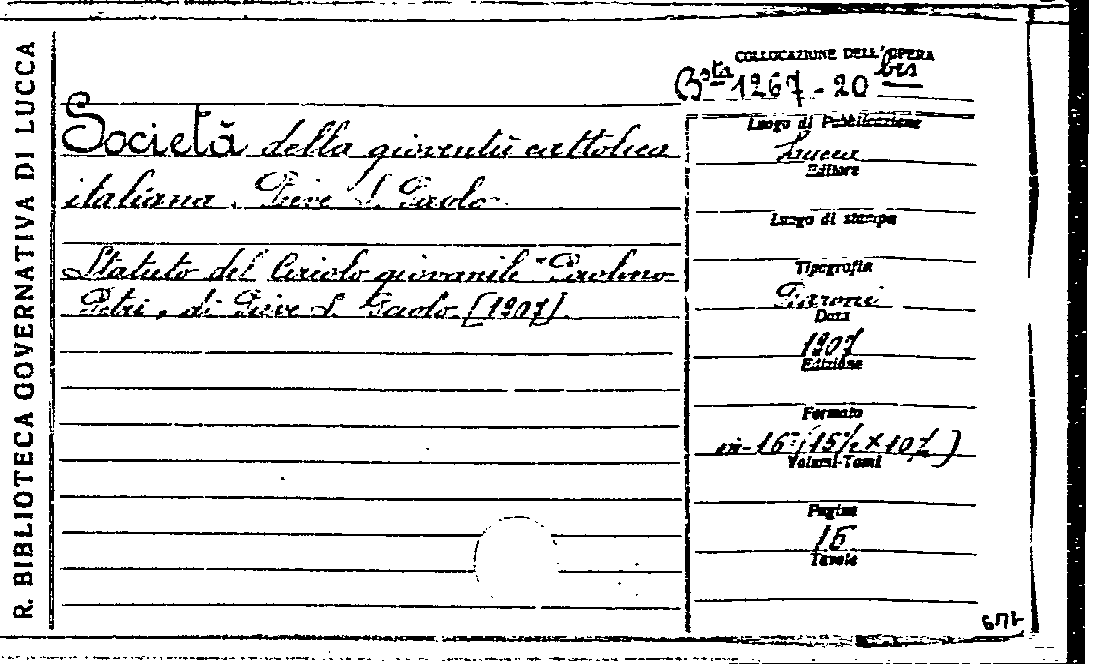 R. BIBLIOTECA GOVERNATIVA DI LUCCA
COLLOCAZIONE DELL'OPERA
Bsta 1267 - 20 bis
Società della gioventù cattolica
italiana. Pieve S. Paolo
Statuto del Circolo giovanile "Paolino
Petri, di Pieve S. Paolo [1907]
Luogo di Pubblicazione
Lucca
Editore
Luogo di stampa
Tipografia
Data
1907
Edizione
Formato
in-16°
Volumi-Tomi
Pagine
16
Tavole